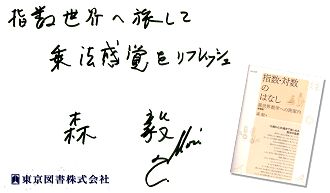 指数世界へ旅して
乗法感覚をリフレッシュ
森 毅
Mori
東京図書株式会社
指数・対数
のはなし